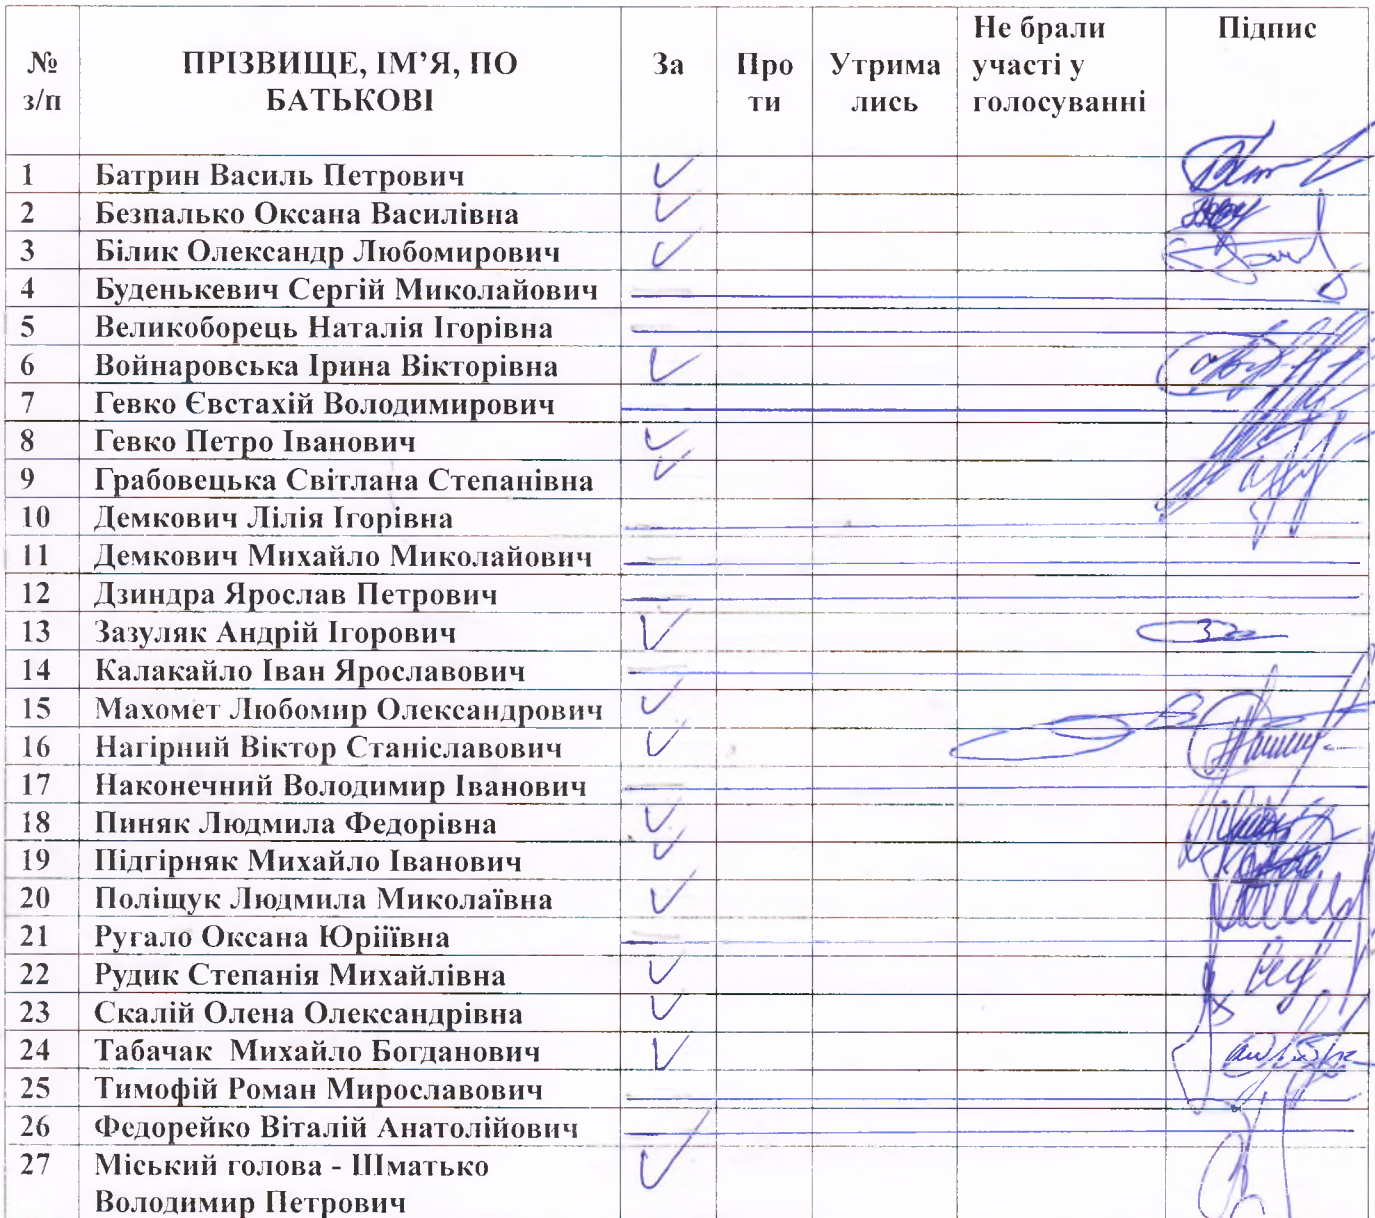 № з/п ПРІЗВИЩЕ, ІМ’Я, ПО БАТЬКОВІ За Про ти Утрима лись Не брали участі у голосуванні Підпис
1 Батрин Василь Петрович ✓
2 Безпалько Оксана Василівна ✓
3 Білик Олександр Любомирович ✓
4 Буденькевич Сергій Миколайович
5 Великоборець Наталія Ігорівна
6 Войнаровська Ірина Вікторівна ✓
7 Гевко Євстахій Володимирович
8 Гевко Петро Іванович ✓
9 Грабовецька Світлана Степанівна ✓
10 Демкович Лілія Ігорівна
11 Демкович Михайло Миколайович
12 Дзиндра Ярослав Петрович
13 Зазуляк Андрій Ігорович ✓
14 Калакайло Іван Ярославович
15 Махомет Любомир Олександрович ✓
16 Нагірний Віктор Станіславович ✓
17 Наконечний Володимир Іванович
18 Пиняк Людмила Федорівна ✓
19 Підгірняк Михайло Іванович ✓
20 Поліщук Людмила Миколаївна ✓
21 Ругало Оксана Юріїівна
22 Рудик Степанія Михайлівна ✓
23 Скалій Олена Олександрівна ✓
24 Табачак Михайло Богданович ✓
25 Тимофій Роман Мирославович
26 Федорейко Віталій Анатолійович
27 Міський голова - Шматько ✓
Володимир Петрович